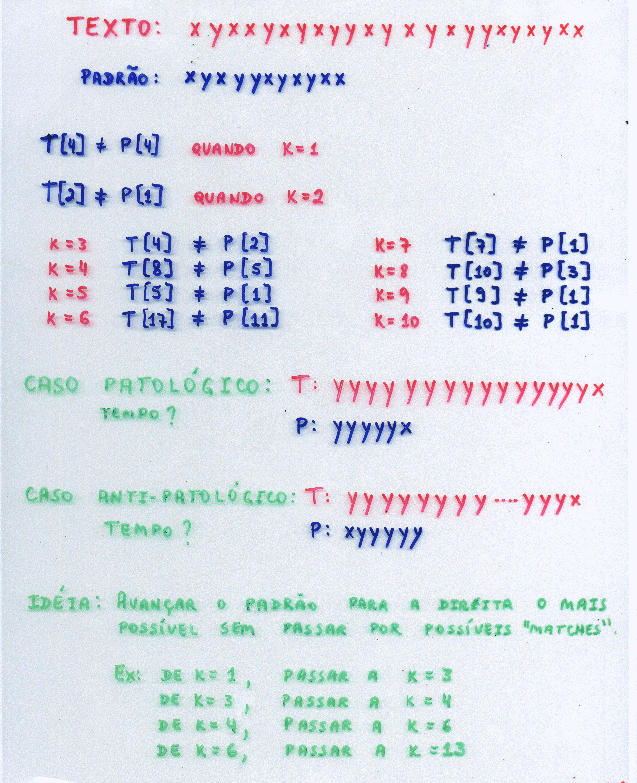 TEXTO: x y x x y x y x y y x y x y x y y x y x y x x
PADRÃO: x y x y y x y x y x x
T[4] ≠ P[4] QUANDO K=1
T[2] ≠ P[1] QUANDO K=2
K=3 T[4] ≠ P[2] K=7 T[7] ≠ P[1]
K=4 T[8] ≠ P[5] K=8 T[10] ≠ P[3]
K=5 T[5] ≠ P[1] K=9 T[9] ≠ P[1]
K=6 T[17] ≠ P[11] K=10 T[10] ≠ P[1]
CASO PATOLÓGICO: T: yyyy yyyyyyyyyyyyyx
TEMPO? P: yyyyyx
CASO ANTI-PATOLÓGICO: T: yyyyyyyy .... yyyx
TEMPO? P: xyyyyy
IDÉIA: AVANÇAR O PADRÃO PARA A DIREITA O MAIS
POSSÍVEL SEM PASSAR POR POSSÍVEIS "MATCHES".
EX: DE K=1, PASSAR A K=3
DE K=3, PASSAR A K=4
DE K=4, PASSAR A K=6
DE K=6, PASSAR A K=13